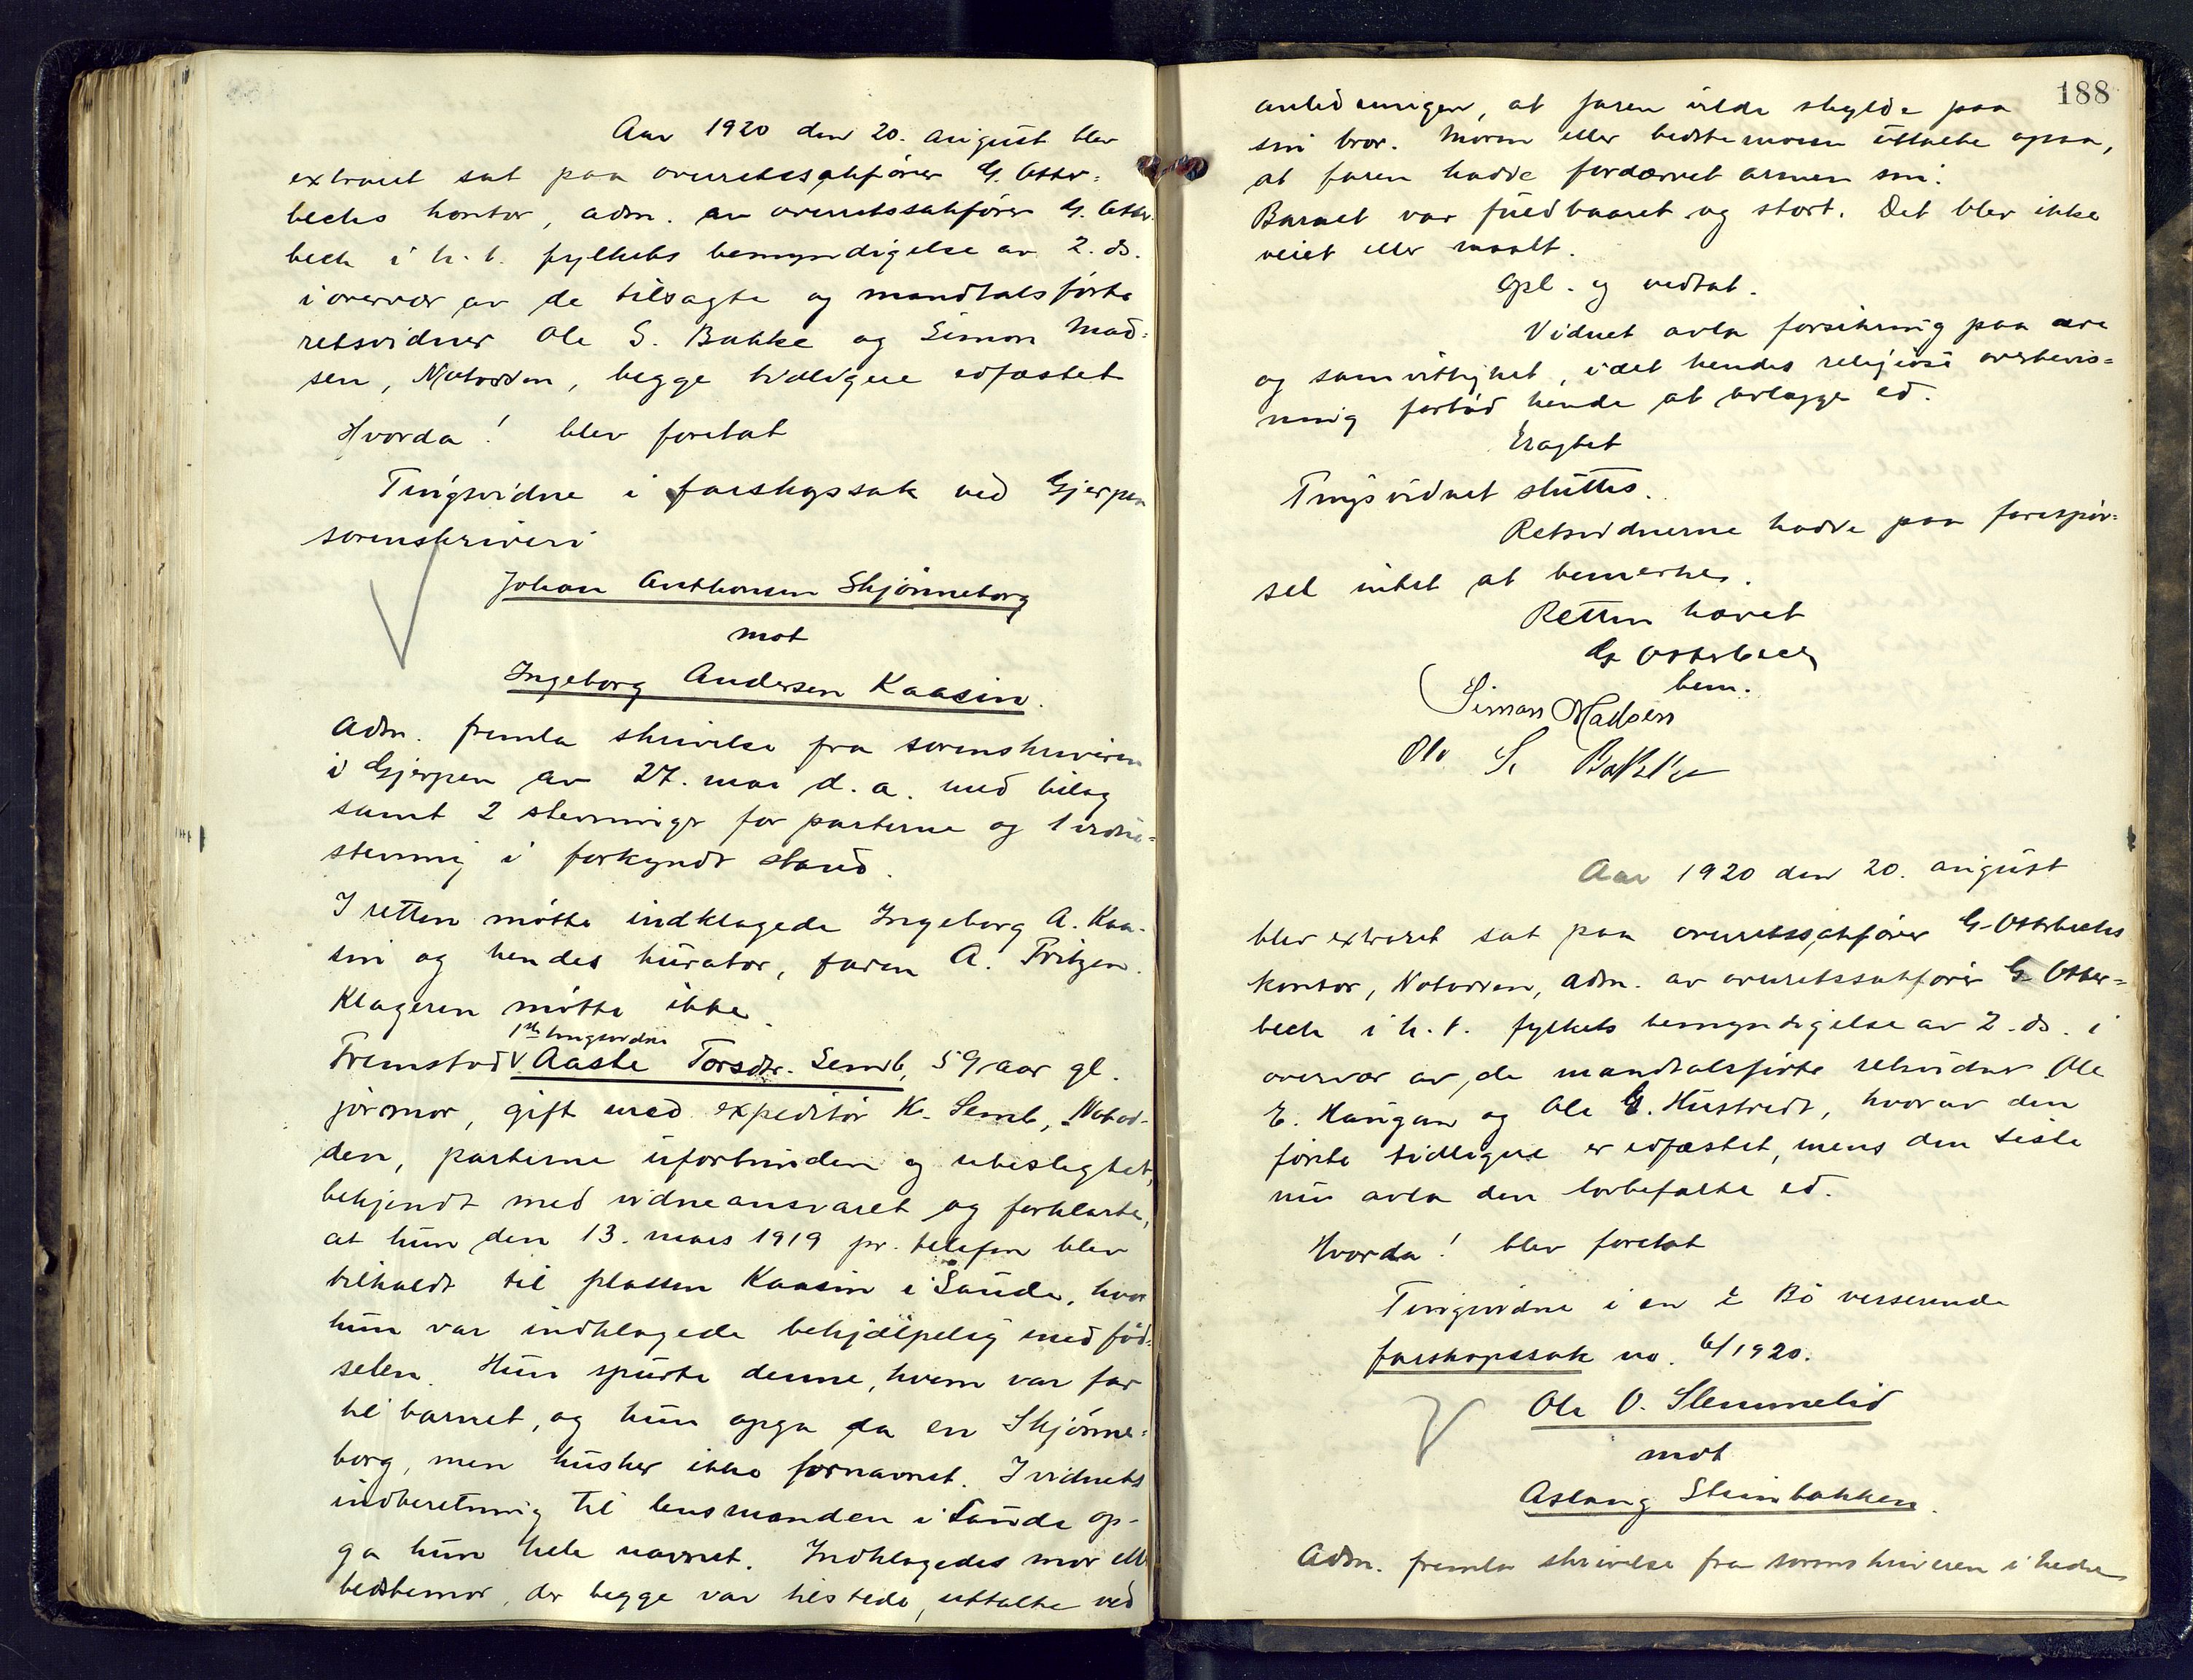 Aar 1920 den 20. august blev
extraret sat paa overretssakfører G. Otter-
becks kontor, adm. av overretssakfører G. Otter-
beck i h. t. fylkets bemyndigelse av 2. ds.
i overvær av de tilsagte og mandtalsførte
retsvidner Ole S. Bakke og Simon Mad-
sen, Notodden, begge tidligere edfæstet
Hvorda! blev foretat
Tingsvidne i farskapssak ved Gjerpen
sorenskriveri
Johan Anthonsen Skjønneborg
mot
Ingeborg Andersen Kaasin.
Adm. fremla skrivelse fra sorenskriveren
i Gjerpen av 27. mai d. a. med bilag
samt 2 stevninger for parterne og 1 vidne-
stevning i forkyndt stand.
I retten møtte indklagede Ingeborg A. Kaa-
sin og hendes kurator, faren A. Fritzen.
Klageren møtte ikke.
1ste tingsvidne
Fremstod V Aaste Torsdtr. Semb, 59 aar gl.
jormor, gift med expeditør K. Semb, Notod-
den, parterne uforbunden og ubeslegtet,
bekjendt med vidneansvaret og forklarte,
at hun den 13. mars 1919 pr. telefon blev
tilkaldt til plassen Kaasin i Saude, hvor
hun var indklagede behjælpelig med fød-
selen. Hun spurte denne, hvem var far
til barnet, og hun opga da en Skjønne-
borg, men husker ikke fornavnet. I vidnets
indberetning til lensmanden i Saude op-
ga hun hele navnet. Indklagedes mor eller
bedstemor, der begge var tilstede, uttalte ved
188
anledningen, at faren vilde skylde paa
sin bror. Moren eller bedstemoren uttalte ogsaa,
at faren hadde fordærvet armen sin.
Barnet var fuldbaaret og stort. Det blev ikke
veiet eller maalt.
Opl. og vedtat.
Vidnet avla forsikring paa ære
og samvittighet, idet hendes religiøse overbevis-
ning forbød hende at avlægge ed.
Eragtet
Tingsvidnet sluttes.
Retsvidnerne hadde paa forespør-
sel intet at bemerke.
Retten hævet
G Otterbeck
bem.
Simon Madsen
Ole S. Bakke
Aar 1920 den 20. august
blev extraret sat paa overretssakfører G. Otterbecks
kontor, Notodden, adm. av overretssakfører G Otter-
beck i h. t. fylkets bemyndigelse av 2. ds. i
overvær av de mandtalsførte retsvidner Ole
E. Haugan og Ole G. Hustvedt, hvorav den
første tidligere er edfæstet, mens den siste
nu avla den lovbefalte ed.
Hvorda! blev foretat
Tingsvidne i en i Bø verserende
farskapssak no. 6/1920.
Ole O. Slemmelid
mot
Aslaug Steinbakken.
Adm. fremla skrivelse fra sorenskriveren i nedre